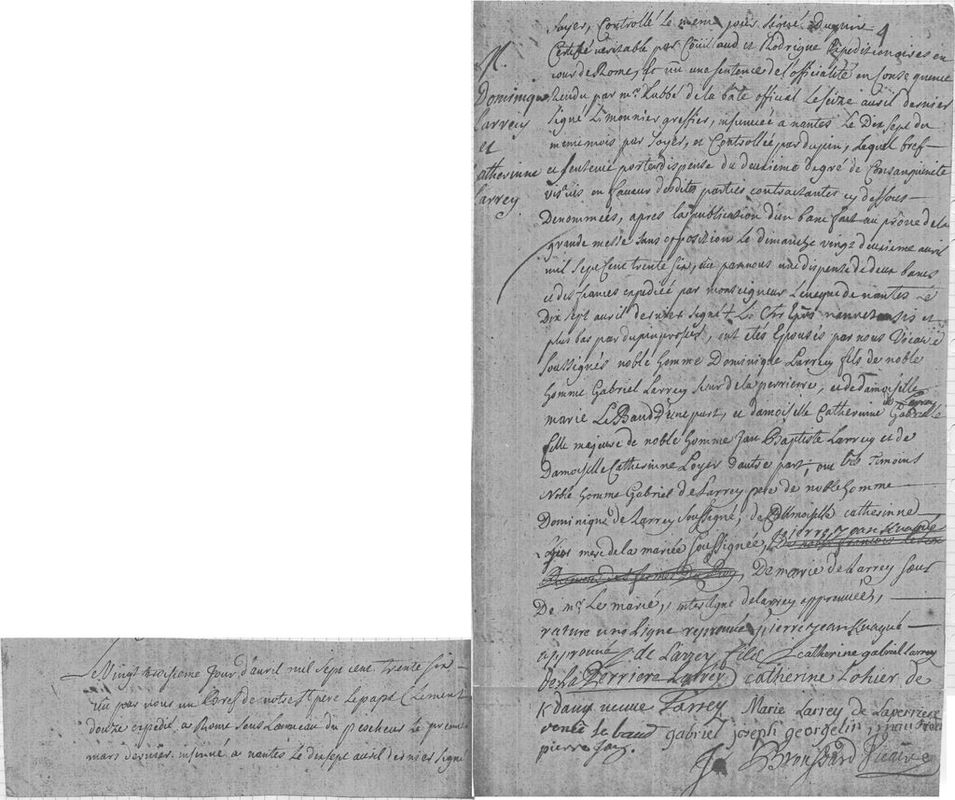 Le Vingt troisieme jour d'avril mil sept cent trente six
vu par nous un bref de notre st pere le pape Clement
douze expedié a Rome sous Lanneau du pescheur le premier
mars dernier. insinué a nantes le dix sept avril dernier signé
N.
Dominique
Larrey
et
Catherinne
Larrey
foyer, Controllé le meme jour signé Dupuin
Certifié veritable par Coüillaud et Rodrigue Expeditionaires en
cour de Rome, et vu une sentence de l'officialité en Consequence
Rendu par mr. Labbé de la bate official Le seize avril dernier
signé Limonnier greffier, insinuée a nantes Le Dix sept du
meme mois par foyer, et Controllée par dupuin, Lequel bref
et sentence portent dispense du deuxieme degré de Consanguinité
en faveur desdites parties contractantes cy dessous
Denommées, apres la publication d'un banc fait au prône de la
grande messe sans opposition le dimanche vingt deuxieme avril
mil sept cent trente six, vu par nous une dispense de deux bancs
et des fiances expediée par monseigneur L'evesque de nantes Le
Dix sept avril dernier signé + Ch. Eps nannetensis et
plus bas par, ont etés Epousés par nous Vicaire
soussignés noble homme Dominique Larrey fils de noble
homme Gabriel Larrey sieur de la perriere, et de damoiselle
marie Le Baud d'une part, et damoiselle Catherinne Gabrielle
de Larrey
fille majeure de noble homme Jan Baptiste Larrey et de
Damoiselle Catherinne Loyer d'autre part, ont etés Temoins
Noble homme Gabriel de Larrey pere de noble homme
Dominique de Larrey soussigné, de Damoiselle catherinne
mere de la mariée soussignée, pierre, jean
De marie de Larrey sœur
De mr. Le marié, interligne delarrey approuvée,
rature une Ligne reprouvée pierre jean
approuvé J. de Larrey fils catherine gabriel Larrey
de la Perriere Larrey catherine Lohier de
veuve Larrey Marie Larrey de Laperriere
renée le baud gabriel joseph georgelin
pierre
J. Broussard Vicaire